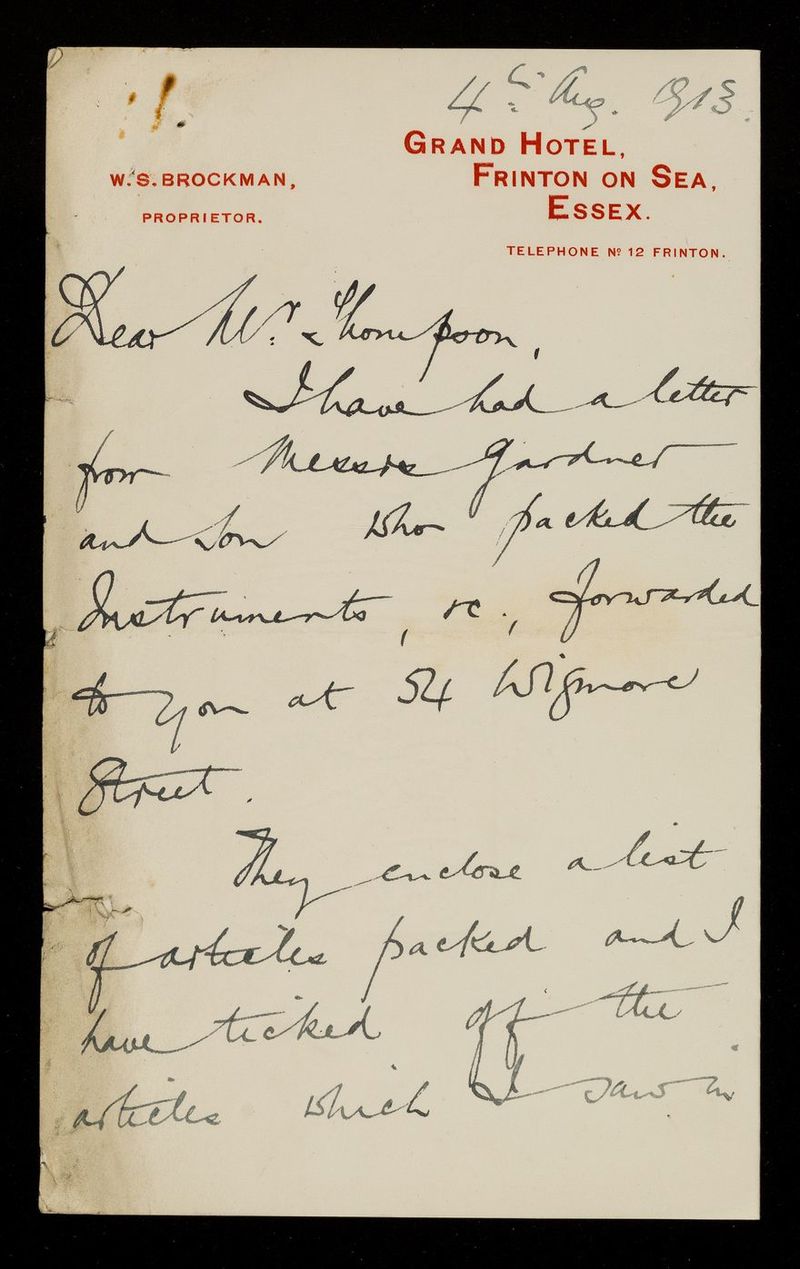 4th Aug. 1913.
GRAND HOTEL,
W.S. BROCKMAN,
FRINTON ON SEA,
PROPRIETOR.
ESSEX.
TELEPHONE Nº 12 FRINTON.
Dear Mr. Thompson,
I have had a letter
from Messrs Gardner
and Son who packed the
Instruments, &c., forwarded
to you at 54 Wigmore
Street.
They enclose a list
of articles packed and I
have ticked off the
articles which I saw in